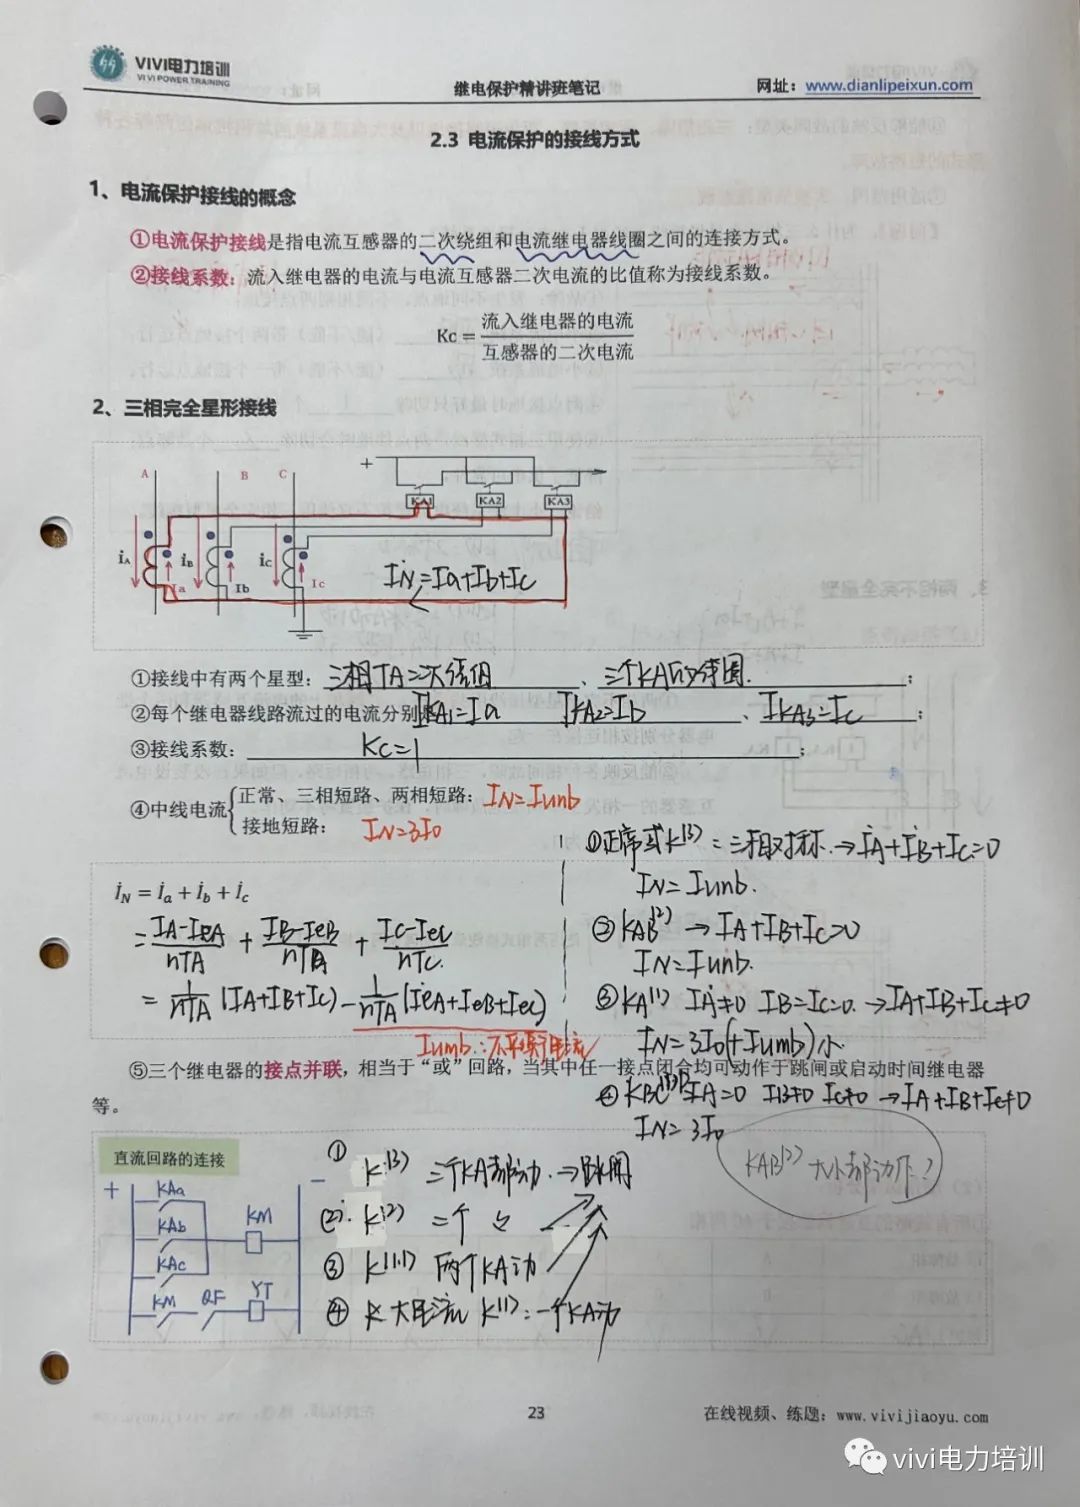 VIVI电力培训
VIVI POWER TRAINING
继电保护精讲班笔记
网址：www.dianlipeixun.com
2.3 电流保护的接线方式
1、电流保护接线的概念
①电流保护接线是指电流互感器的二次绕组和电流继电器线圈之间的连接方式。
②接线系数：流入继电器的电流与电流互感器二次电流的比值称为接线系数。
Kc=流入继电器的电流/互感器的二次电流
2、三相完全星形接线
A B C
+
KA1 KA2 KA3
iA iB iC
Ia Ib Ic
IN=Ia+Ib+Ic
①接线中有两个星型：三相TA二次绕组、三个KA的线圈.；
②每个继电器线路流过的电流分别是IKA1=Ia IKA2=Ib、IKA3=Ic；
③接线系数：Kc=1；
④中线电流
正常、三相短路、两相短路：IN=Iunb
接地短路：IN=3I0
İN = İa + İb + İc
= IA-IeA/nTA + IB-IeB/nTA + IC-IeC/nTC.
= 1/nTA (IA+IB+IC) - 1/nTA (IeA+IeB+IeC)
Iumb：不平衡电流
①正常或K(3)：三相对称.→İA+İB+İC=0
IN=Iunb.
②KAB(2) → IA+IB+IC=0
IN=Iunb.
③KA(1) IA≠0 IB=IC=0.→IA+IB+IC≠0
IN=3I0(+Iumb)小.
④KBC(1,1) IA=0 IB≠0 IC≠0 →IA+IB+IC≠0
IN=3I0
⑤三个继电器的接点并联，相当于“或”回路，当其中任一接点闭合均可动作于跳闸或启动时间继电器
等。
直流回路的连接
+ −
KAa
KAb KM
KAc
KM QF YT
① K(3) 三个KA都动.→跳闸
②. K(2) 二个
③ K(1.1) 两个KA动
④ 大电流 K(1)：一个KA动
KAB(2) 大小都动作？
23
在线视频、练题：www.vivijiaoyu.com
vivi电力培训